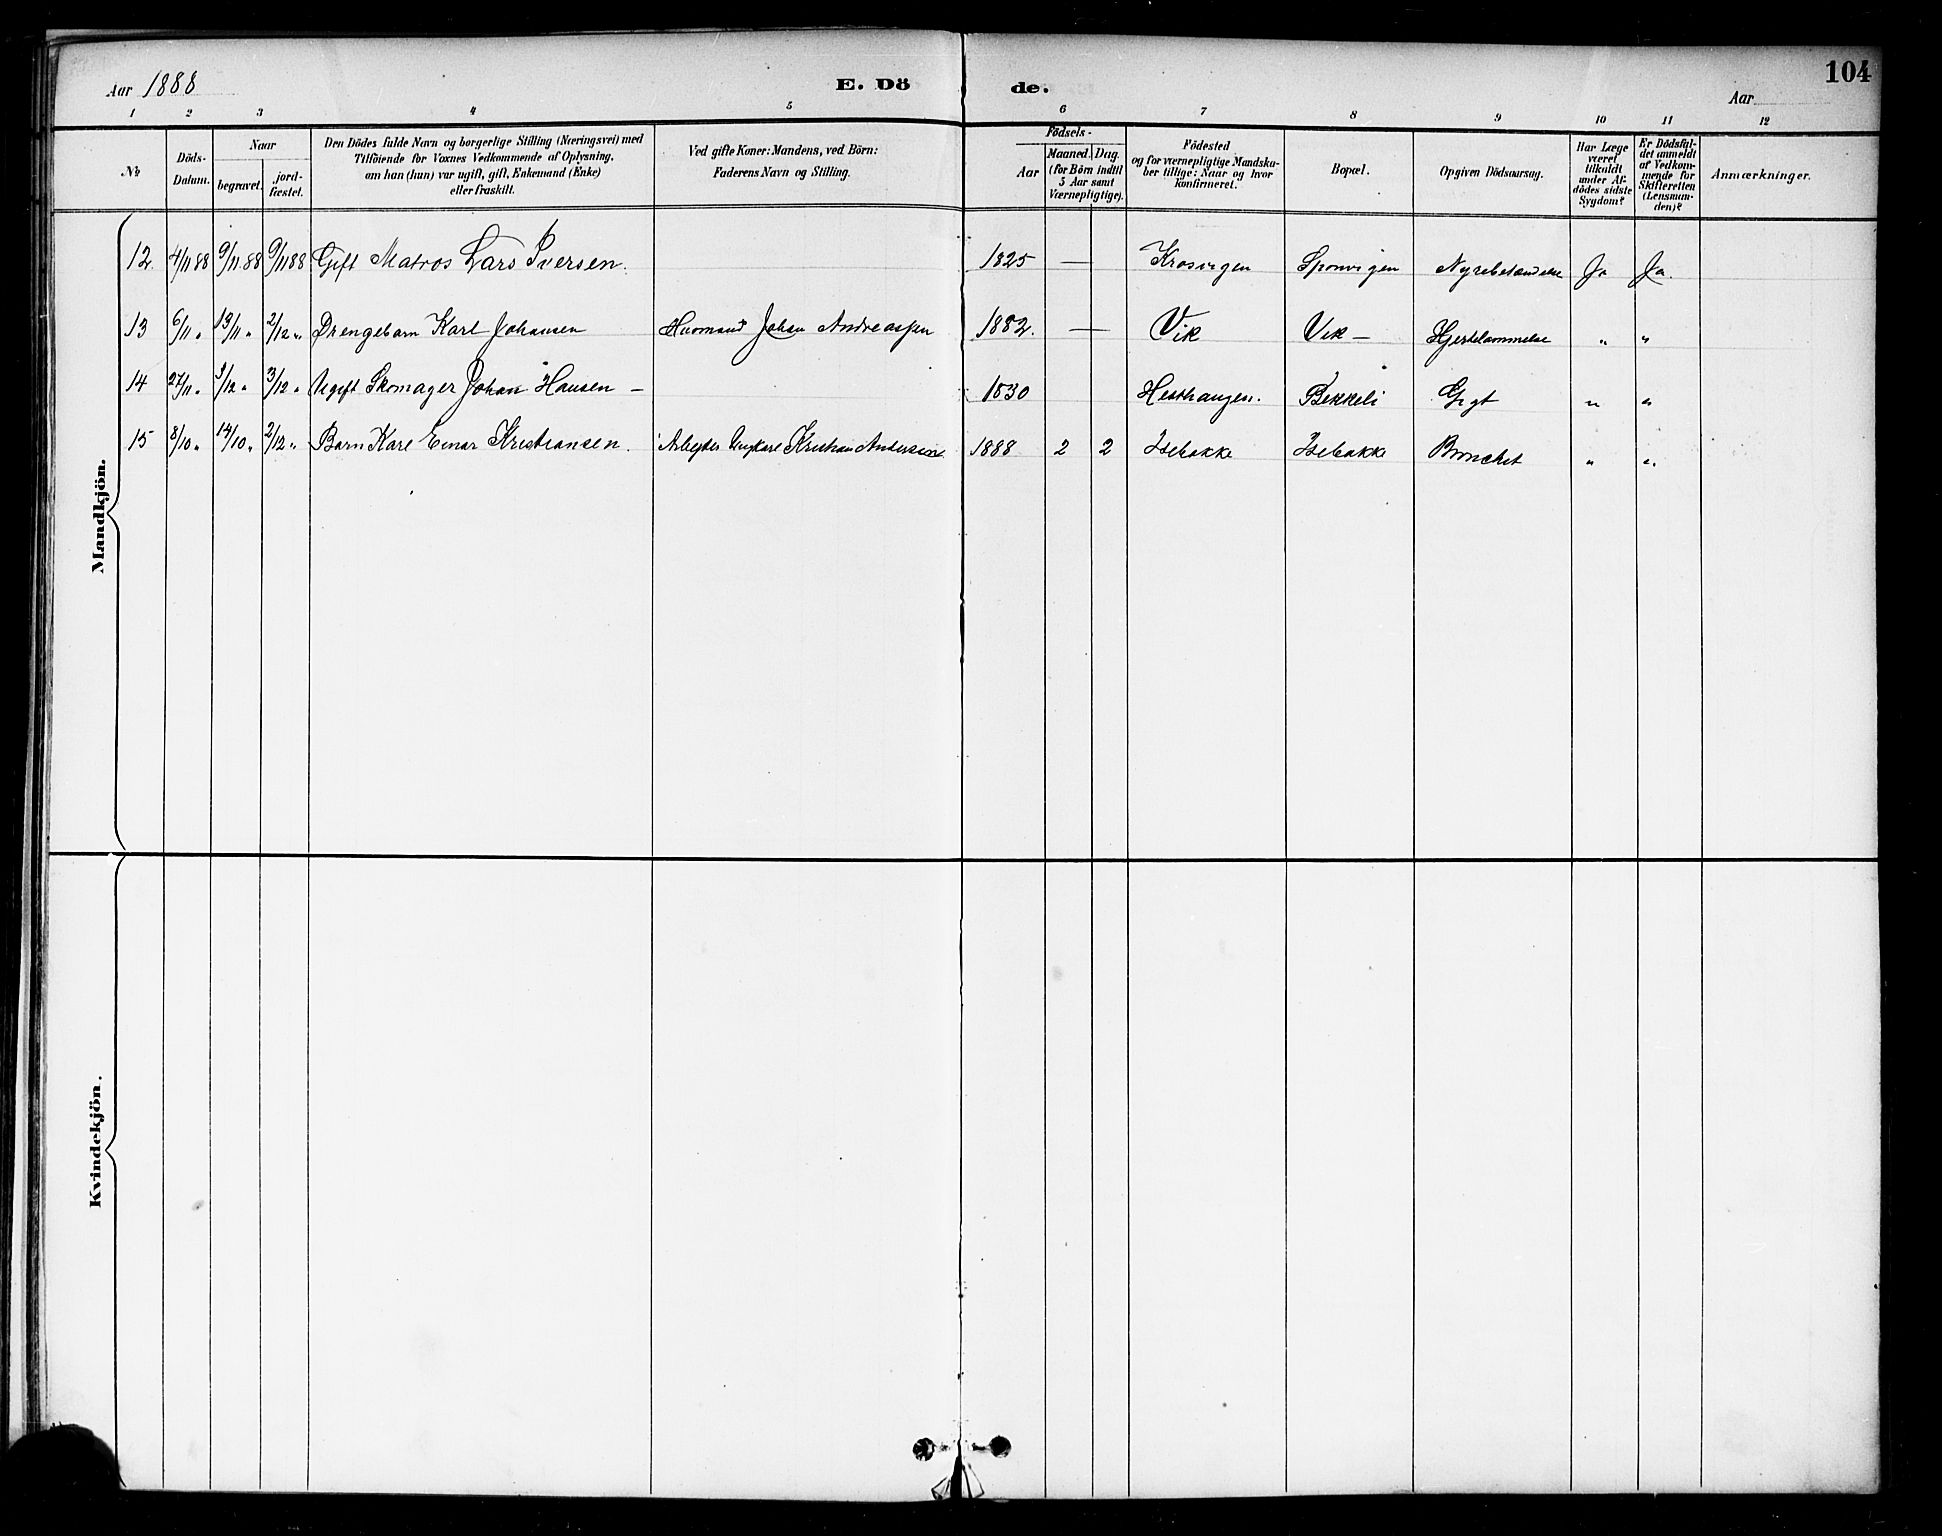 Aar 1888
E. Dö de.
104
Aar
1 2 3 4 5 6 7 8 9 10 11 12
No
Döds-Datum.
Naar
begravet.
jord-fæstet.
Den Dödes fulde Navn og borgerlige Stilling (Næringsvei) med
Tilföiende for Voxnes Vedkommende af Oplysning,
om han (hun) var ugift, gift, Enkemand (Enke)
eller fraskilt.
Ved gifte Koner: Mandens, ved Börn:
Faderens Navn og Stilling.
Födsels-
Aar
Maaned. Dag.
(for Börn indtil
5 Aar samt
Værnepligtige).
Födested
og for værnepligtige Mandska-
ber tillige: Naar og hvor
konfirmeret.
Bopæl.
Opgiven Dödsaarsag.
Har Læge
været
tilkaldt
under Af-
dödes sidste
Sygdom?
Er Dödsfal-
det anmeldt
af Vedkom-
mende for
Skifteretten
(Lensman-
den)?
Anmærkninger.
Mandkjön.
12. 4/11 88 9/11 88 9/11 88 Gift Matros Lars Iversen. 1825 — Krosvigen Sponvigen Nyrebetændelse Ja Ja.
13 6/11 " 13/11 " 2/12 " Drengebarn Karl Johansen Husmand Johan Andreassen 1882. — Vik Vik — Hjertelammelse " "
14 27/11 " 3/12 " 3/12 " Ugift Skomager Johan Hansen — 1830 Hesthaugen. Bekkeli Gigt " "
15 8/10 " 14/10 " 2/12 " Barn Karl Einar Kristiansen. Arbejder Ungkarl Kristian Andersen 1888 2 2 Isebakke Isebakke Bronchit " "
Kvindekjön.